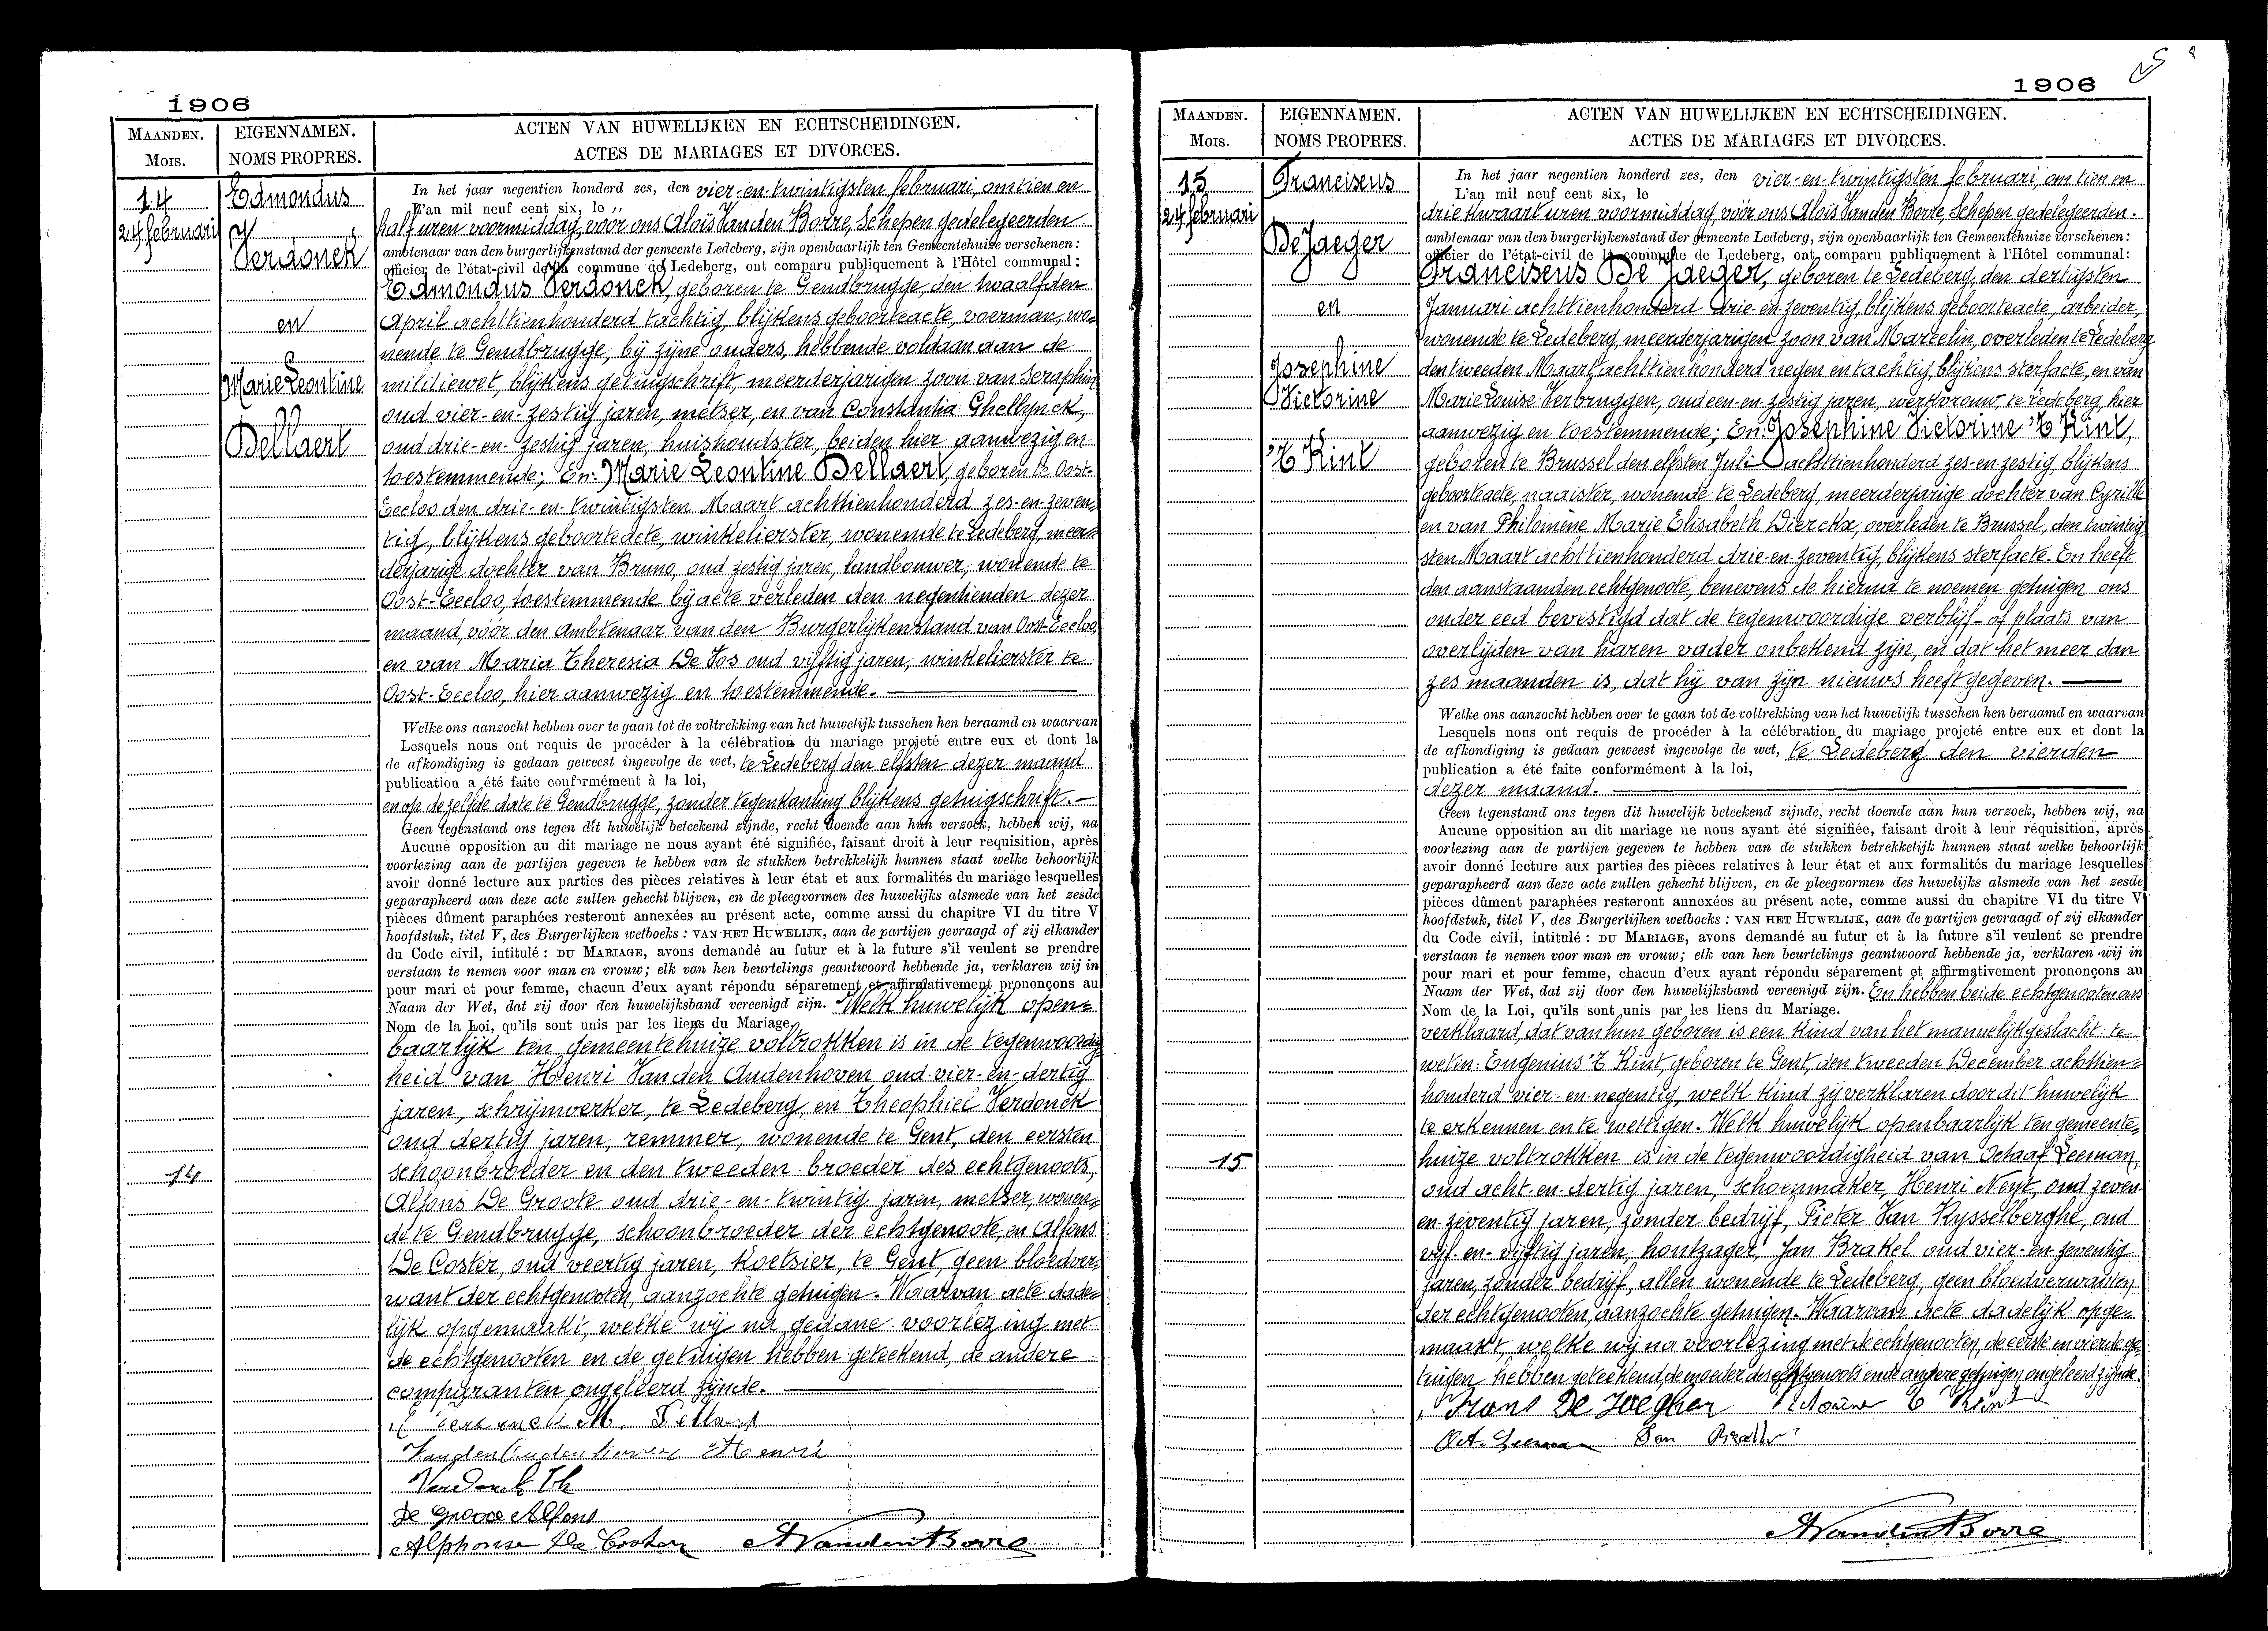 1906
MAANDEN.
MOIS.
EIGENNAMEN.
NOMS PROPRES.
ACTEN VAN HUWELIJKEN EN ECHTSCHEIDINGEN.
ACTES DE MARIAGES ET DIVORCES.
14
24 februari
Edmondus
Verdonck
en
Marie Leontine
Dellaert
In het jaar negentien honderd zes, den vier-en-twintigsten februari, om tien en
L'an mil neuf cent six, le
half uren voormiddag, voor ons Alois Vanden Borre, Schepen gedelegeerden
ambtenaar van den burgerlijkenstand der gemeente Ledeberg, zijn openbaarlijk ten Gemeentehuize verschenen:
officier de l'état-civil de la commune de Ledeberg, ont comparu publiquement à l'Hôtel communal:
Edmondus Verdonck, geboren te Gendbrugge, den twaalfden
April achttienhonderd tachtig, blijkens geboorteacte, voerman, wo=
nende te Gendbrugge, bij zijne ouders, hebbende voldaan aan de
militiewet, blijkens getuigschrift, meerderjarigen zoon van Seraphin
oud vier-en-zestig jaren, metser, en van Constantia Ghellynck,
oud drie-en-zestig jaren, huishoudster, beiden hier aanwezig en
toestemmende; En: Marie Leontine Dellaert, geboren te Oost-
Eecloo den drie-en-twintigsten Maart achttienhonderd zes-en-zeven=
tig, blijkens geboorteacte, winkelierster, wonende te Ledeberg, meer=
derjarige dochter van Bruno, oud zestig jaren, landbouwer, wonende te
Oost-Eecloo, toestemmende bij acte verleden den negentienden dezer
maand vóór den Ambtenaar van den Burgerlijkenstand van Oost-Eecloo
en van Maria Theresia De Vos oud vijftig jaren, winkelierster te
Oost-Eecloo, hier aanwezig en toestemmende.
Welke ons aanzocht hebben over te gaan tot de voltrekking van het huwelijk tusschen hen beraamd en waarvan
Lesquels nous ont requis de procéder à la célébration du mariage projeté entre eux et dont la
de afkondiging is gedaan geweest ingevolge de wet, te Ledeberg den elfsten dezer maand
publication a été faite conformément à la loi,
en op de zelfde date te Gendbrugge, zonder tegenkanting blijkens getuigschrift.
Geen tegenstand ons tegen dit huwelijk beteekend zijnde, recht doende aan hun verzoek, hebben wij, na
Aucune opposition au dit mariage ne nous ayant été signifiée, faisant droit à leur requisition, après
voorlezing aan de partijen gegeven te hebben van de stukken betrekkelijk hunnen staat welke behoorlijk
avoir donné lecture aux parties des pièces relatives à leur état et aux formalités du mariage lesquelles
geparapheerd aan deze acte zullen gehecht blijven, en de pleegvormen des huwelijks alsmede van het zesde
pièces dûment paraphées resteront annexées au présent acte, comme aussi du chapitre VI du titre V
hoofdstuk, titel V, des Burgerlijken wetboeks: VAN HET HUWELIJK, aan de partijen gevraagd of zij elkander
du Code civil, intitulé: DU MARIAGE, avons demandé au futur et à la future s'il veulent se prendre
verstaan te nemen voor man en vrouw; elk van hen beurtelings geantwoord hebbende ja, verklaren wij in
pour mari et pour femme, chacun d'eux ayant répondu séparement et affirmativement prononçons au
Naam der Wet, dat zij door den huwelijksband vereenigd zijn. Welk huwelijk open=
Nom de la Loi, qu'ils sont unis par les liens du Mariage.
baarlijk ten gemeentehuize voltrokken is in de tegenwoordig=
heid van Henri Vanden Audenhoven oud vier-en-dertig
jaren, schrijnwerker, te Ledeberg, en Theophiel Verdonck
oud dertig jaren, remmer, wonende te Gent, den eersten
14
schoonbroeder en den tweeden broeder des echtgenoots,
Alfons De Groote oud drie-en-twintig jaren, metser, wonen=
de te Gendbrugge, schoonbroeder der echtgenoote, en Alfons
De Coster, oud veertig jaren, koetsier, te Gent, geen bloedver=
want der echtgenooten, aanzochte getuigen. Waarvan acte dade=
lijk opgemaakt, welke wij na gedane voorlezing met
de echtgenooten en de getuigen hebben geteekend, de andere
comparanten ongeleerd zijnde.
Vanden Audenhoven Henri
Verdonck Th
De Groote Alfons
Alphonse De Coster A Vanden Borre
1906
MAANDEN.
MOIS.
EIGENNAMEN.
NOMS PROPRES.
ACTEN VAN HUWELIJKEN EN ECHTSCHEIDINGEN.
ACTES DE MARIAGES ET DIVORCES.
15
24 februari
Franciscus
De Jaeger
en
Josephine
Victorine
'T Kint
In het jaar negentien honderd zes, den vier-en-twintigsten februari, om tien en
L'an mil neuf cent six, le
drie kwaart uren voormiddag, vóór ons Alois Vanden Borre, Schepen gedelegeerden.
ambtenaar van den burgerlijkenstand der gemeente Ledeberg, zijn openbaarlijk ten Gemeentehuize verschenen:
officier de l'état-civil de la commune de Ledeberg, ont comparu publiquement à l'Hôtel communal:
Franciscus De Jaeger, geboren te Ledeberg, den dertigsten
Januari achttienhonderd drie-en-zeventig, blijkens geboorteacte, arbeider,
wonende te Ledeberg, meerderjarigen zoon van Marcelin, overleden te Ledeberg
den tweeden Maart achttienhonderd negen en tachtig, blijkens sterfacte, en van
Marie Louise Verbruggen, oud een-en-zestig jaren, werkvrouw, te Ledeberg, hier
aanwezig en toestemmende; En: Josephine Victorine 'T Kint,
geboren te Brussel den elfsten Juli achttienhonderd zes-en-zestig, blijkens
geboorteacte, naaister, wonende te Ledeberg, meerderjarige dochter van Cyrille
en van Philomène Marie Elisabeth Dierckx, overleden te Brussel, den twintig=
sten Maart achttienhonderd drie-en-zeventig, blijkens sterfacte. En heeft
den aanstaanden echtgenoote, benevens de hierna te noemen getuigen ons
onder eed bevestigd dat de tegenwoordige verblijf- of plaats van
overlijden van haren vader onbekend zijn, en dat het meer dan
zes maanden is, dat hij van zijn nieuws heeft gegeven.
Welke ons aanzocht hebben over te gaan tot de voltrekking van het huwelijk tusschen hen beraamd en waarvan
Lesquels nous ont requis de procéder à la célébration du mariage projeté entre eux et dont la
de afkondiging is gedaan geweest ingevolge de wet, te Ledeberg den vierden
publication a été faite conformément à la loi,
dezer maand.
Geen tegenstand ons tegen dit huwelijk beteekend zijnde, recht doende aan hun verzoek, hebben wij, na
Aucune opposition au dit mariage ne nous ayant été signifiée, faisant droit à leur réquisition, après
voorlezing aan de partijen gegeven te hebben van de stukken betrekkelijk hunnen staat welke behoorlijk
avoir donné lecture aux parties des pièces relatives à leur état et aux formalités du mariage lesquelles
geparapheerd aan deze acte zullen gehecht blijven, en de pleegvormen des huwelijks alsmede van het zesde
pièces dûment paraphées resteront annexées au présent acte, comme aussi du chapitre VI du titre V
hoofdstuk, titel V, des Burgerlijken wetboeks: VAN HET HUWELIJK, aan de partijen gevraagd of zij elkander
du Code civil, intitulé: DU MARIAGE, avons demandé au futur et à la future s'il veulent se prendre
verstaan te nemen voor man en vrouw; elk van hen beurtelings geantwoord hebbende ja, verklaren wij in
pour mari et pour femme, chacun d'eux ayant répondu séparement et affirmativement prononçons au
Naam der Wet, dat zij door den huwelijksband vereenigd zijn. En hebben beide echtgenooten ons
Nom de la Loi, qu'ils sont unis par les liens du Mariage.
verklaard, dat van hun geboren is een kind van het mannelijk geslacht: te
weten: Eugenius 'T Kint, geboren te Gent, den tweeden December achttien=
honderd vier-en-negentig, welk kind zij verklaren door dit huwelijk
te erkennen en te wettigen. Welk huwelijk openbaarlijk ten gemeente=
15
huize voltrokken is in de tegenwoordigheid van Octaaf Leeman,
oud acht-en-dertig jaren, schoenmaker, Henri Neyt, oud zeven-
en-zeventig jaren, zonder bedrijf, Pieter Van Rysselberghe, oud
vijf-en-vijftig jaren, houtzager, Jan Brakel oud vier-en-zeventig
jaren, zonder bedrijf, allen wonende te Ledeberg, geen bloedverwanten
der echtgenooten, aanzochte getuigen. Waarvan acte dadelijk opge=
maakt, welke wij na voorlezing met de echtgenooten, de eerste en vierde ge=
tuigen hebben geteekend, de moeder des echtgenoots en de andere getuigen ongeleerd zijnde.
Frans De Jaegher 'T Kint
Oct. Leeman Jan
A Vanden Borre